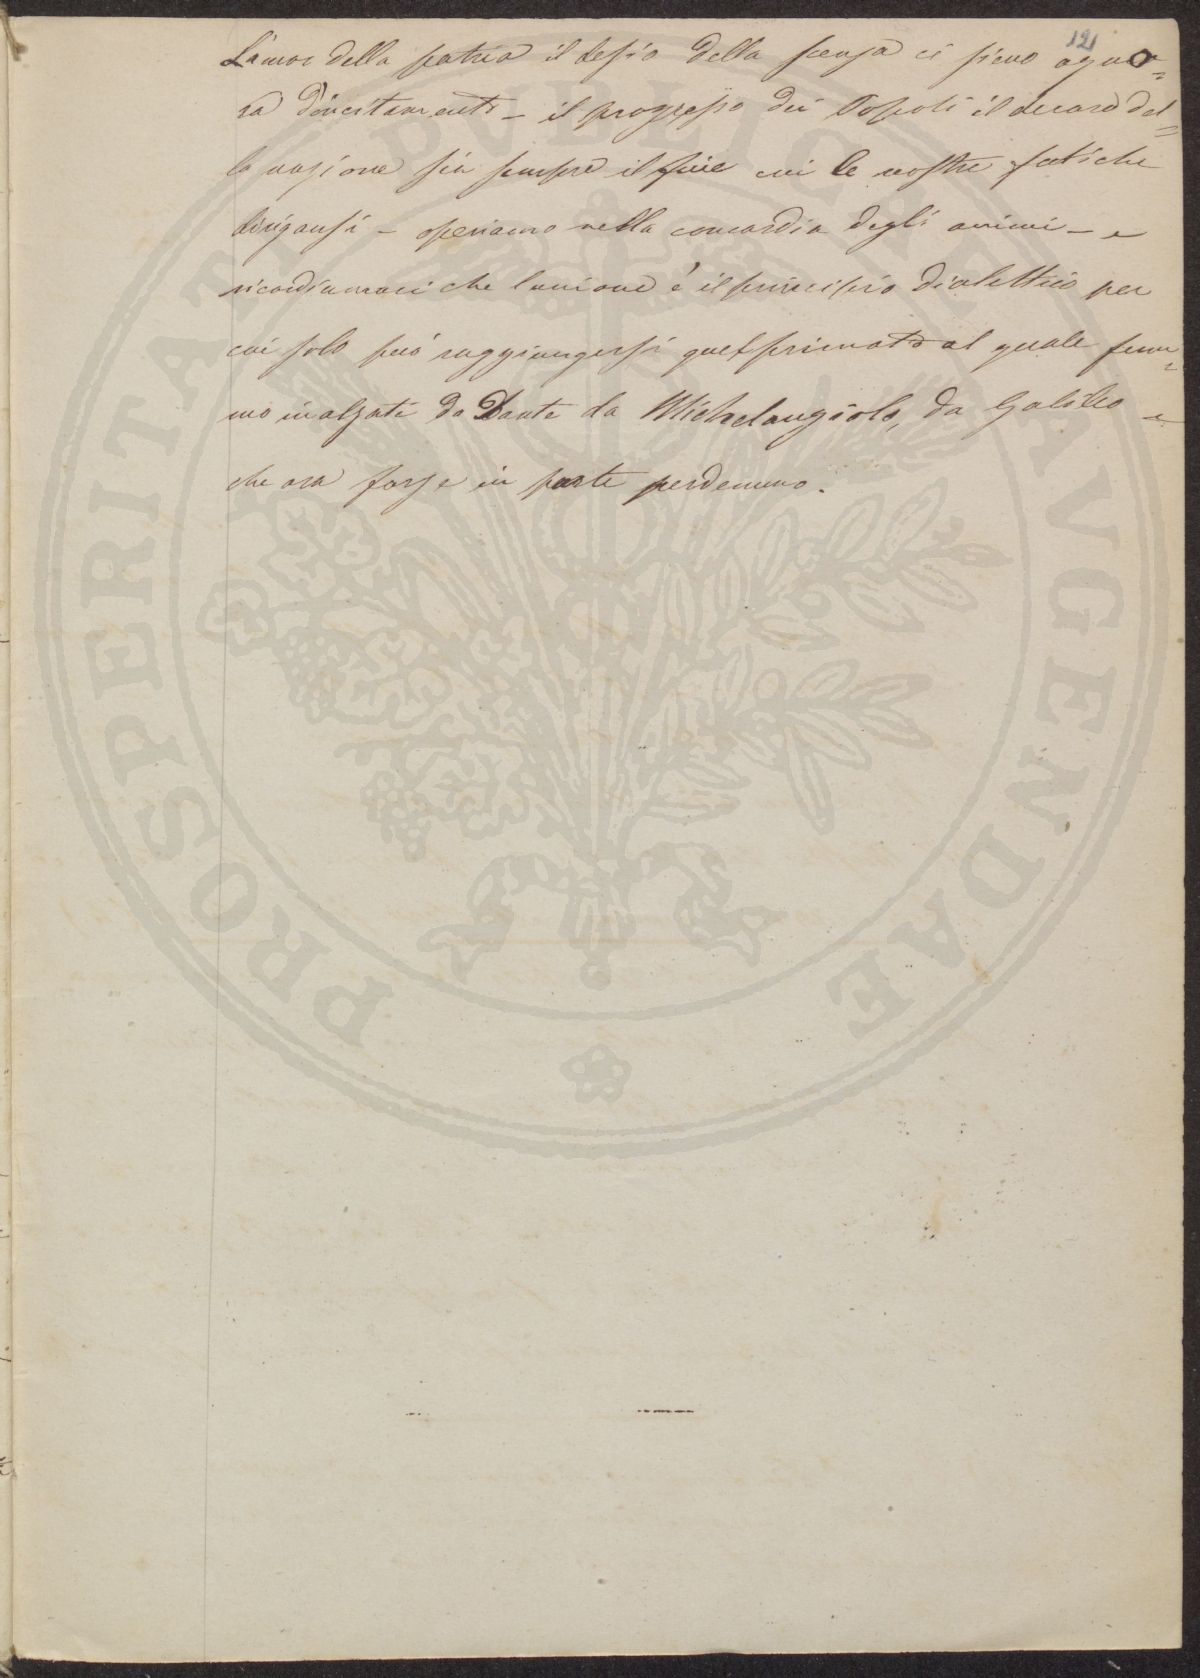 121
L'amor della patria il desio della scenza ci sieno ogno=
ra d'incitamento – il progresso dei Popoli il decoro del=
la nazione sia sempre il fine cui le nostre fatiche
dirigansi – operiamo nella concordia degli animi – e
ricordiamoci che l'unione è il principio dialettico per
cui solo può raggiungersi quel primato al quale fum=
mo inalzati da Dante da Michelangiolo, da Galileo – e
che ora forse in parte perdemmo.
PROSPERITATI PVBLICAE AVGENDAE